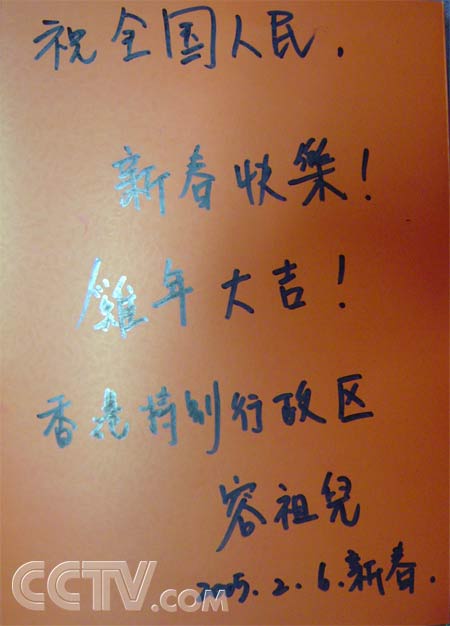 祝全国人民.
新春快樂!
雞年大吉!
香港特别行政区
容祖兒
2005.2.6.新春.
CCTV.com